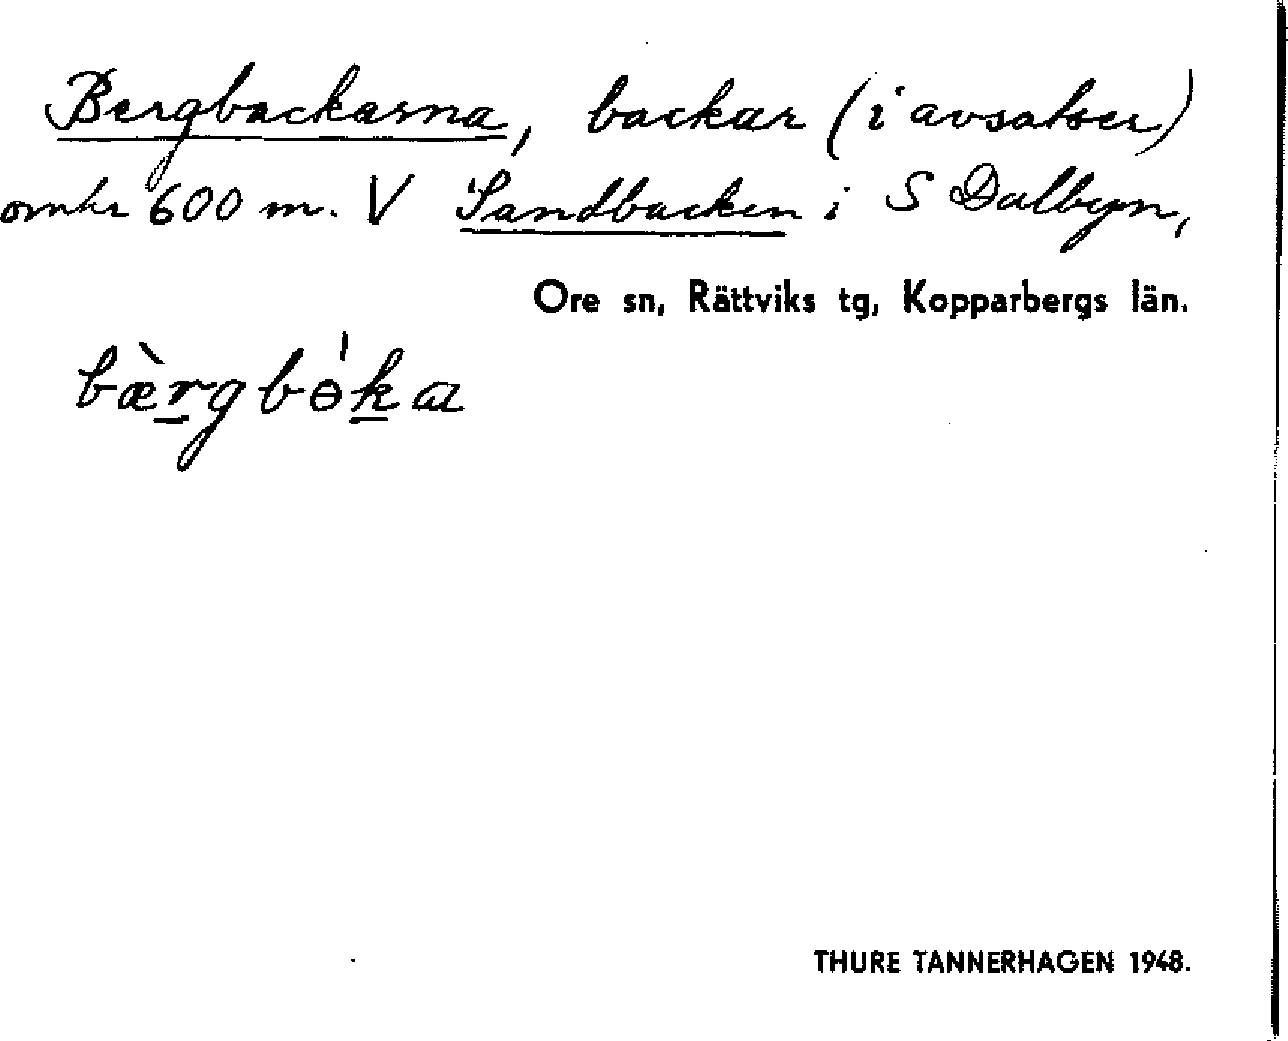 Bergbackarna, backar (i avsatser)
omkr 600 m. V Sandbacken i S Dalbyn,
Ore sn, Rättviks tg, Kopparbergs län.
bæ̀r̲gbɵ́k̲a
THURE TANNERHAGEN 1948.